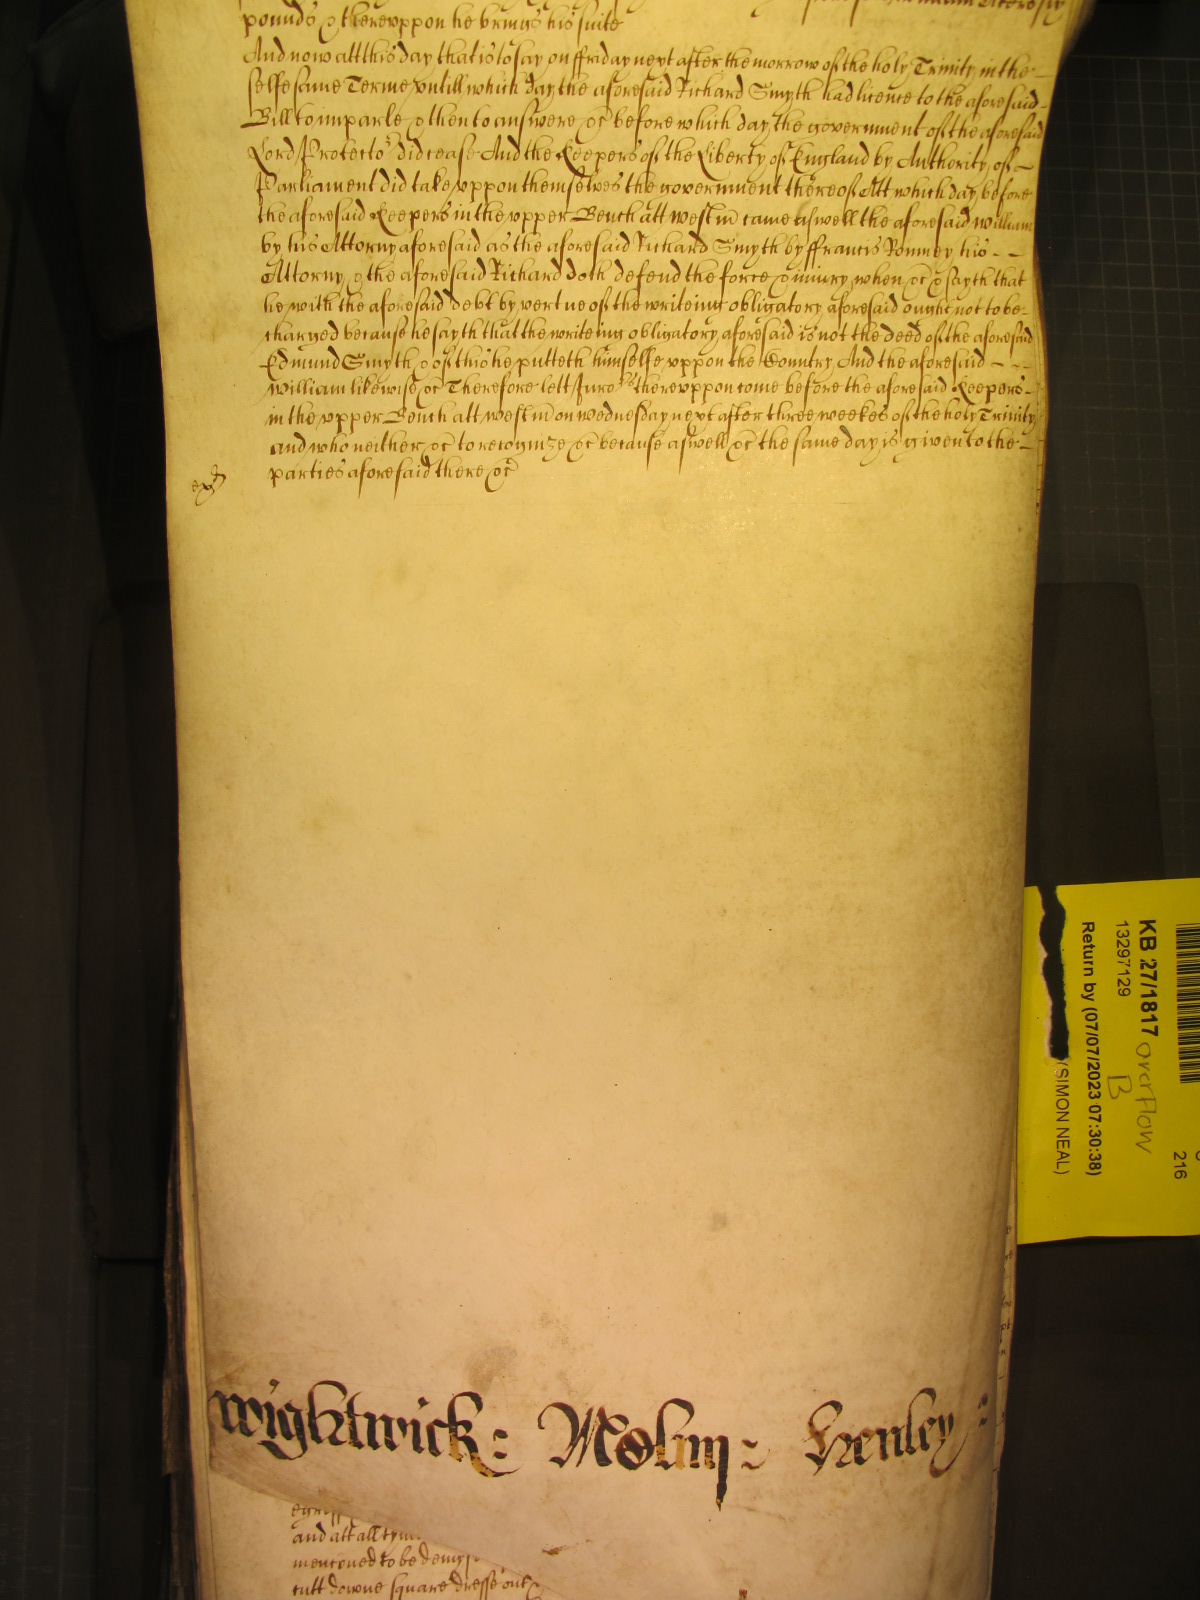 pounds & thereuppon he brings his suite
And now att this day that is to say on ffriday next after the morrow of the holy Trinity in the
selfe same Terme untill which day the aforesaid Richard Smyth had licence to the aforesaid
Bill to imparle & then to answere &c before which day the government of the aforesaid
Lord Protector did cease And the Keepers of the Liberty of England by Authority of
Parliament did take uppon themselves the government thereof Att which day before
the aforesaid Keepers in the upper Bench att westm came aswell the aforesaid william
by his Attorny aforesaid as the aforesaid Richard Smyth by ffrancis Romney his
Attorny & the aforesaid Richard doth defend the force & iniury when &c & sayth that
he with the aforesaid debt by vertue of the writeing obligatory aforesaid ought not to be
charged because he sayth that the writeing obligatory aforesaid is not the deed of the aforesaid
Edmund Smyth & of this he putteth himselfe uppon the Country And the aforesaid
william likewise &c Therefore lett Juro:rs thereuppon come before the aforesaid Keepers
in the upper Bench att westm on wednesday next after three weekes of the holy Trinity
and who neither &c to recognize &c because aswell &c the same day is given to the
parties aforesaid there &c
wightwick: Molin: Henley:
and att all tym
mencioned to be demys
cutt downe square dresse out
KB 27/1817 overflow
13297129 B
Return by (07/07/2023 07:30:38)
(SIMON NEAL)
216